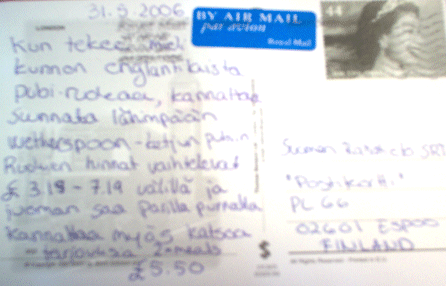 31.5.2006
LONDON
Kun tekee mieli
kunnon englantilaista
pubi-ruokaa, kannattaa
suunnata lähimpään
Wetherspoon-ketjun pubiin
Ruokien hinnat vaihtelevat
£ 3.19 - 7.19 välillä ja
juoman saa parilla punnalla
Kannattaa myös katsoa
tarjouksia 2 meals
£5.50
BY AIR MAIL
par avion
Royal Mail
44
Suomen
"Postikortti"
PL 66
02601 ESPOO
FINLAND
$
All Rights Reserved